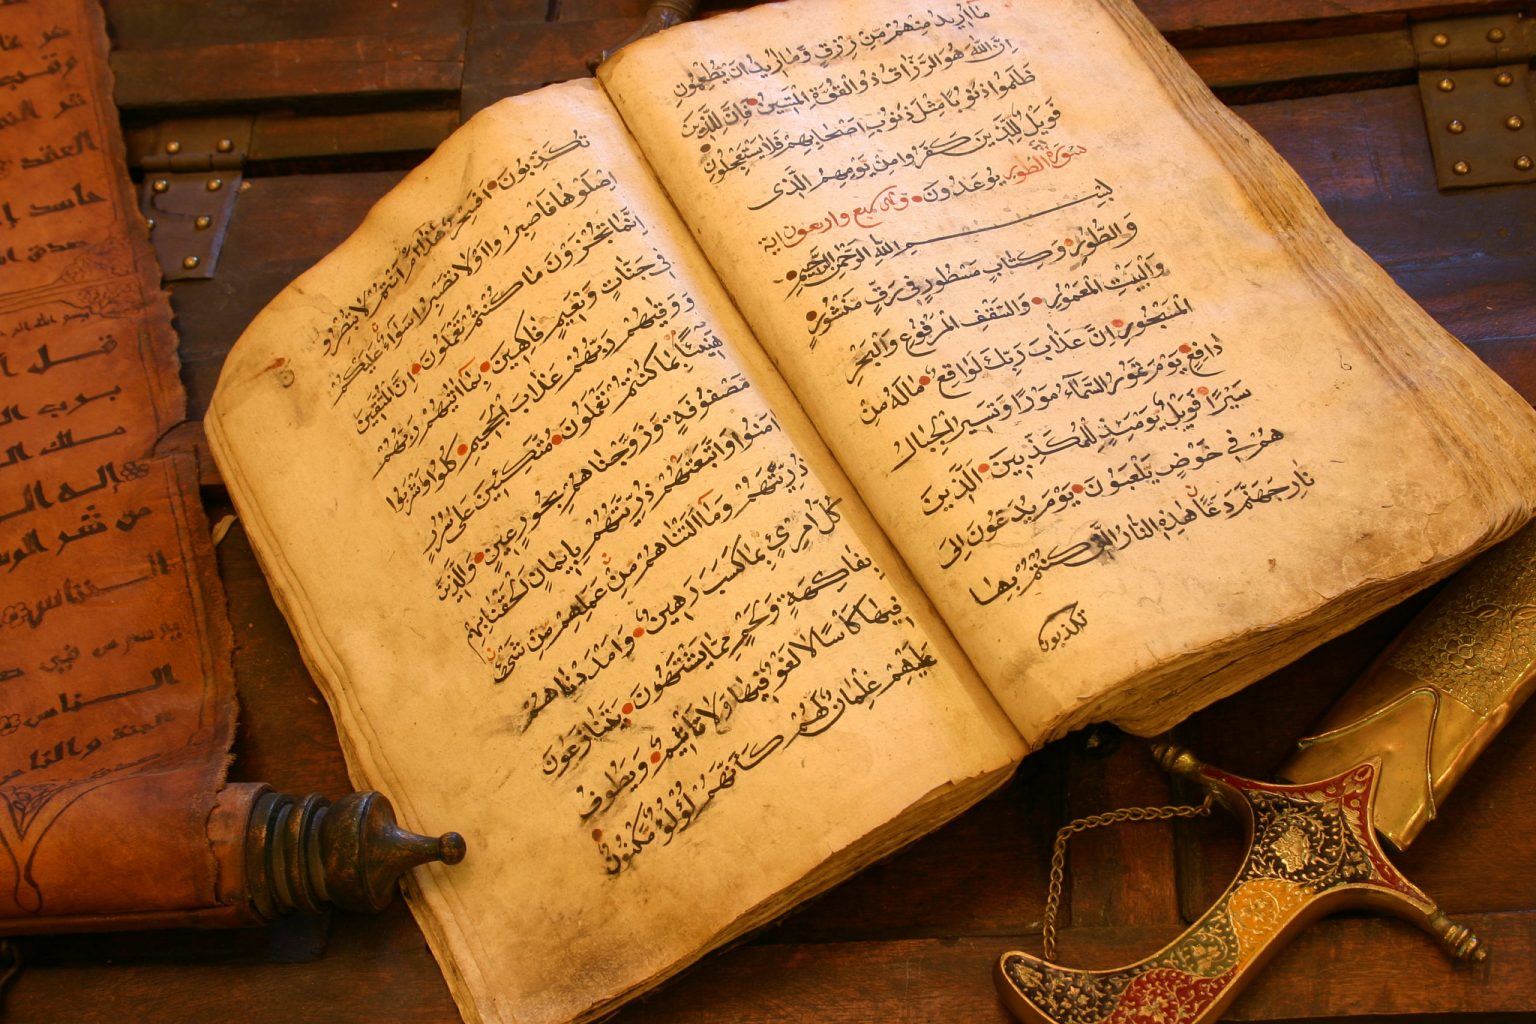 مَا أُرِيدُ مِنْهُمْ مِنْ رِزْقٍ وَمَا أُرِيدُ أَنْ يُطْعِمُونِ
إِنَّ اللَّهَ هُوَ الرَّزَّاقُ ذُو الْقُوَّةِ الْمَتِينُ فَإِنَّ لِلَّذِينَ
ظَلَمُوا ذَنُوبًا مِثْلَ ذَنُوبِ أَصْحَابِهِمْ فَلَا يَسْتَعْجِلُونِ
فَوَيْلٌ لِلَّذِينَ كَفَرُوا مِنْ يَوْمِهِمُ الَّذِي
يُوعَدُونَ سورة الطور وهي سبع واربعون اية
بِسْمِ اللهِ الرَّحْمَنِ الرَّحِيمِ
وَالطُّورِ وَكِتَابٍ مَسْطُورٍ فِي رَقٍّ مَنْشُورٍ
وَالْبَيْتِ الْمَعْمُورِ وَالسَّقْفِ الْمَرْفُوعِ وَالْبَحْرِ
الْمَسْجُورِ اِنَّ عَذَابَ رَبِّكَ لَوَاقِعٌ مَالَهُ مِنْ
دَافِعٍ يَوْمَ تَمُورُ السَّمَاءُ مَوْرًا وَتَسِيرُ الْجِبَالُ
سَيْرًا فَوَيْلٌ يَوْمَئِذٍ لِلْمُكَذِّبِينَ الَّذِينَ
هُمْ فِي خَوْضٍ يَلْعَبُونَ يَوْمَ يُدَعُّونَ اِلَى
نَارِ جَهَنَّمَ دَعًّا هَذِهِ النَّارُ الَّتِي كُنْتُمْ بِهَا
تكذبون
تُكَذِّبُونَ اَفَسِحْرٌ هَذَا اَمْ اَنْتُمْ لَا تُبْصِرُونَ
اِصْلَوْهَا فَاصْبِرُوا اَوْ لَا تَصْبِرُوا سَوَاءٌ عَلَيْكُمْ
اِنَّمَا تُجْزَوْنَ مَا كُنْتُمْ تَعْمَلُونَ اِنَّ الْمُتَّقِينَ
فِي جَنَّاتٍ وَنَعِيمٍ فَاكِهِينَ بِمَا اتَيهُمْ رَبُّهُمْ
وَوَقَيهُمْ رَبُّهُمْ عَذَابَ الْجَحِيمِ كُلُوا وَاشْرَبُوا
هَنِيئًا بِمَا كُنْتُمْ تَعْمَلُونَ مُتَّكِئِينَ عَلَى سُرُرٍ
مَصْفُوفَةٍ وَزَوَّجْنَاهُمْ بِحُورٍ عِينٍ وَالَّذِينَ
امَنُوا وَاتَّبَعَتْهُمْ ذُرِّيَّتُهُمْ بِاِيمَانٍ اَلْحَقْنَا بِهِمْ
ذُرِّيَّتَهُمْ وَمَا اَلَتْنَاهُمْ مِنْ عَمَلِهِمْ مِنْ شَيْءٍ
كُلُّ امْرِئٍ بِمَا كَسَبَ رَهِينٌ وَاَمْدَدْنَاهُمْ
بِفَاكِهَةٍ وَلَحْمٍ مِمَّا يَشْتَهُونَ يَتَنَازَعُونَ
فِيهَا كَأْسًا لَا لَغْوٌ فِيهَا وَلَا تَأْثِيمٌ وَيَطُوفُ
عَلَيْهِمْ غِلْمَانٌ لَهُمْ كَاَنَّهُمْ لُؤْلُؤٌ مَكْنُونٌ
العقد
حاسد إ
بسم الله الر
قل أ
برب ال
ملك ال
إله ال
من شر الوس
الخناس
يوسوس في ص
الناس
الجنة والناس